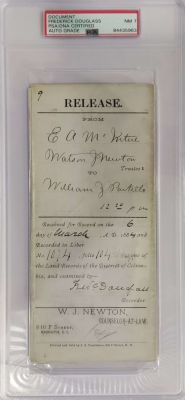 DOCUMENT
FREDERICK DOUGLASS NM 7
PSA/DNA CERTIFIED
AUTO GRADE 84435963
9
RELEASE.
FROM
E A McIntire
Watson J Newton
Trustees
TO
William J
12 p m
Received for Record on the 6
day of March A.D. 188
and Recorded in Liber
No. 1074 folio 104
of the Land Records of the District of Colum-
bia, and examined by
Fredk Douglass
Recorder
W. J. NEWTON,
COUNSELLOR-AT-LAW,